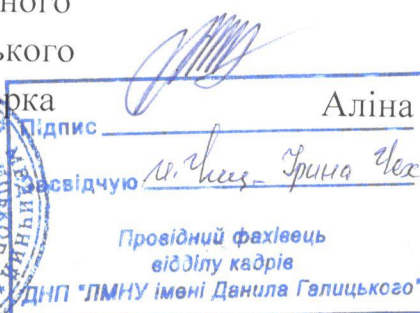 ного
ького
рка Аліна
Підпис
Засвідчую Ірина Чех
Провідний фахівець
відділу кадрів
ДНП "ЛМНУ імені Данила Галицького"